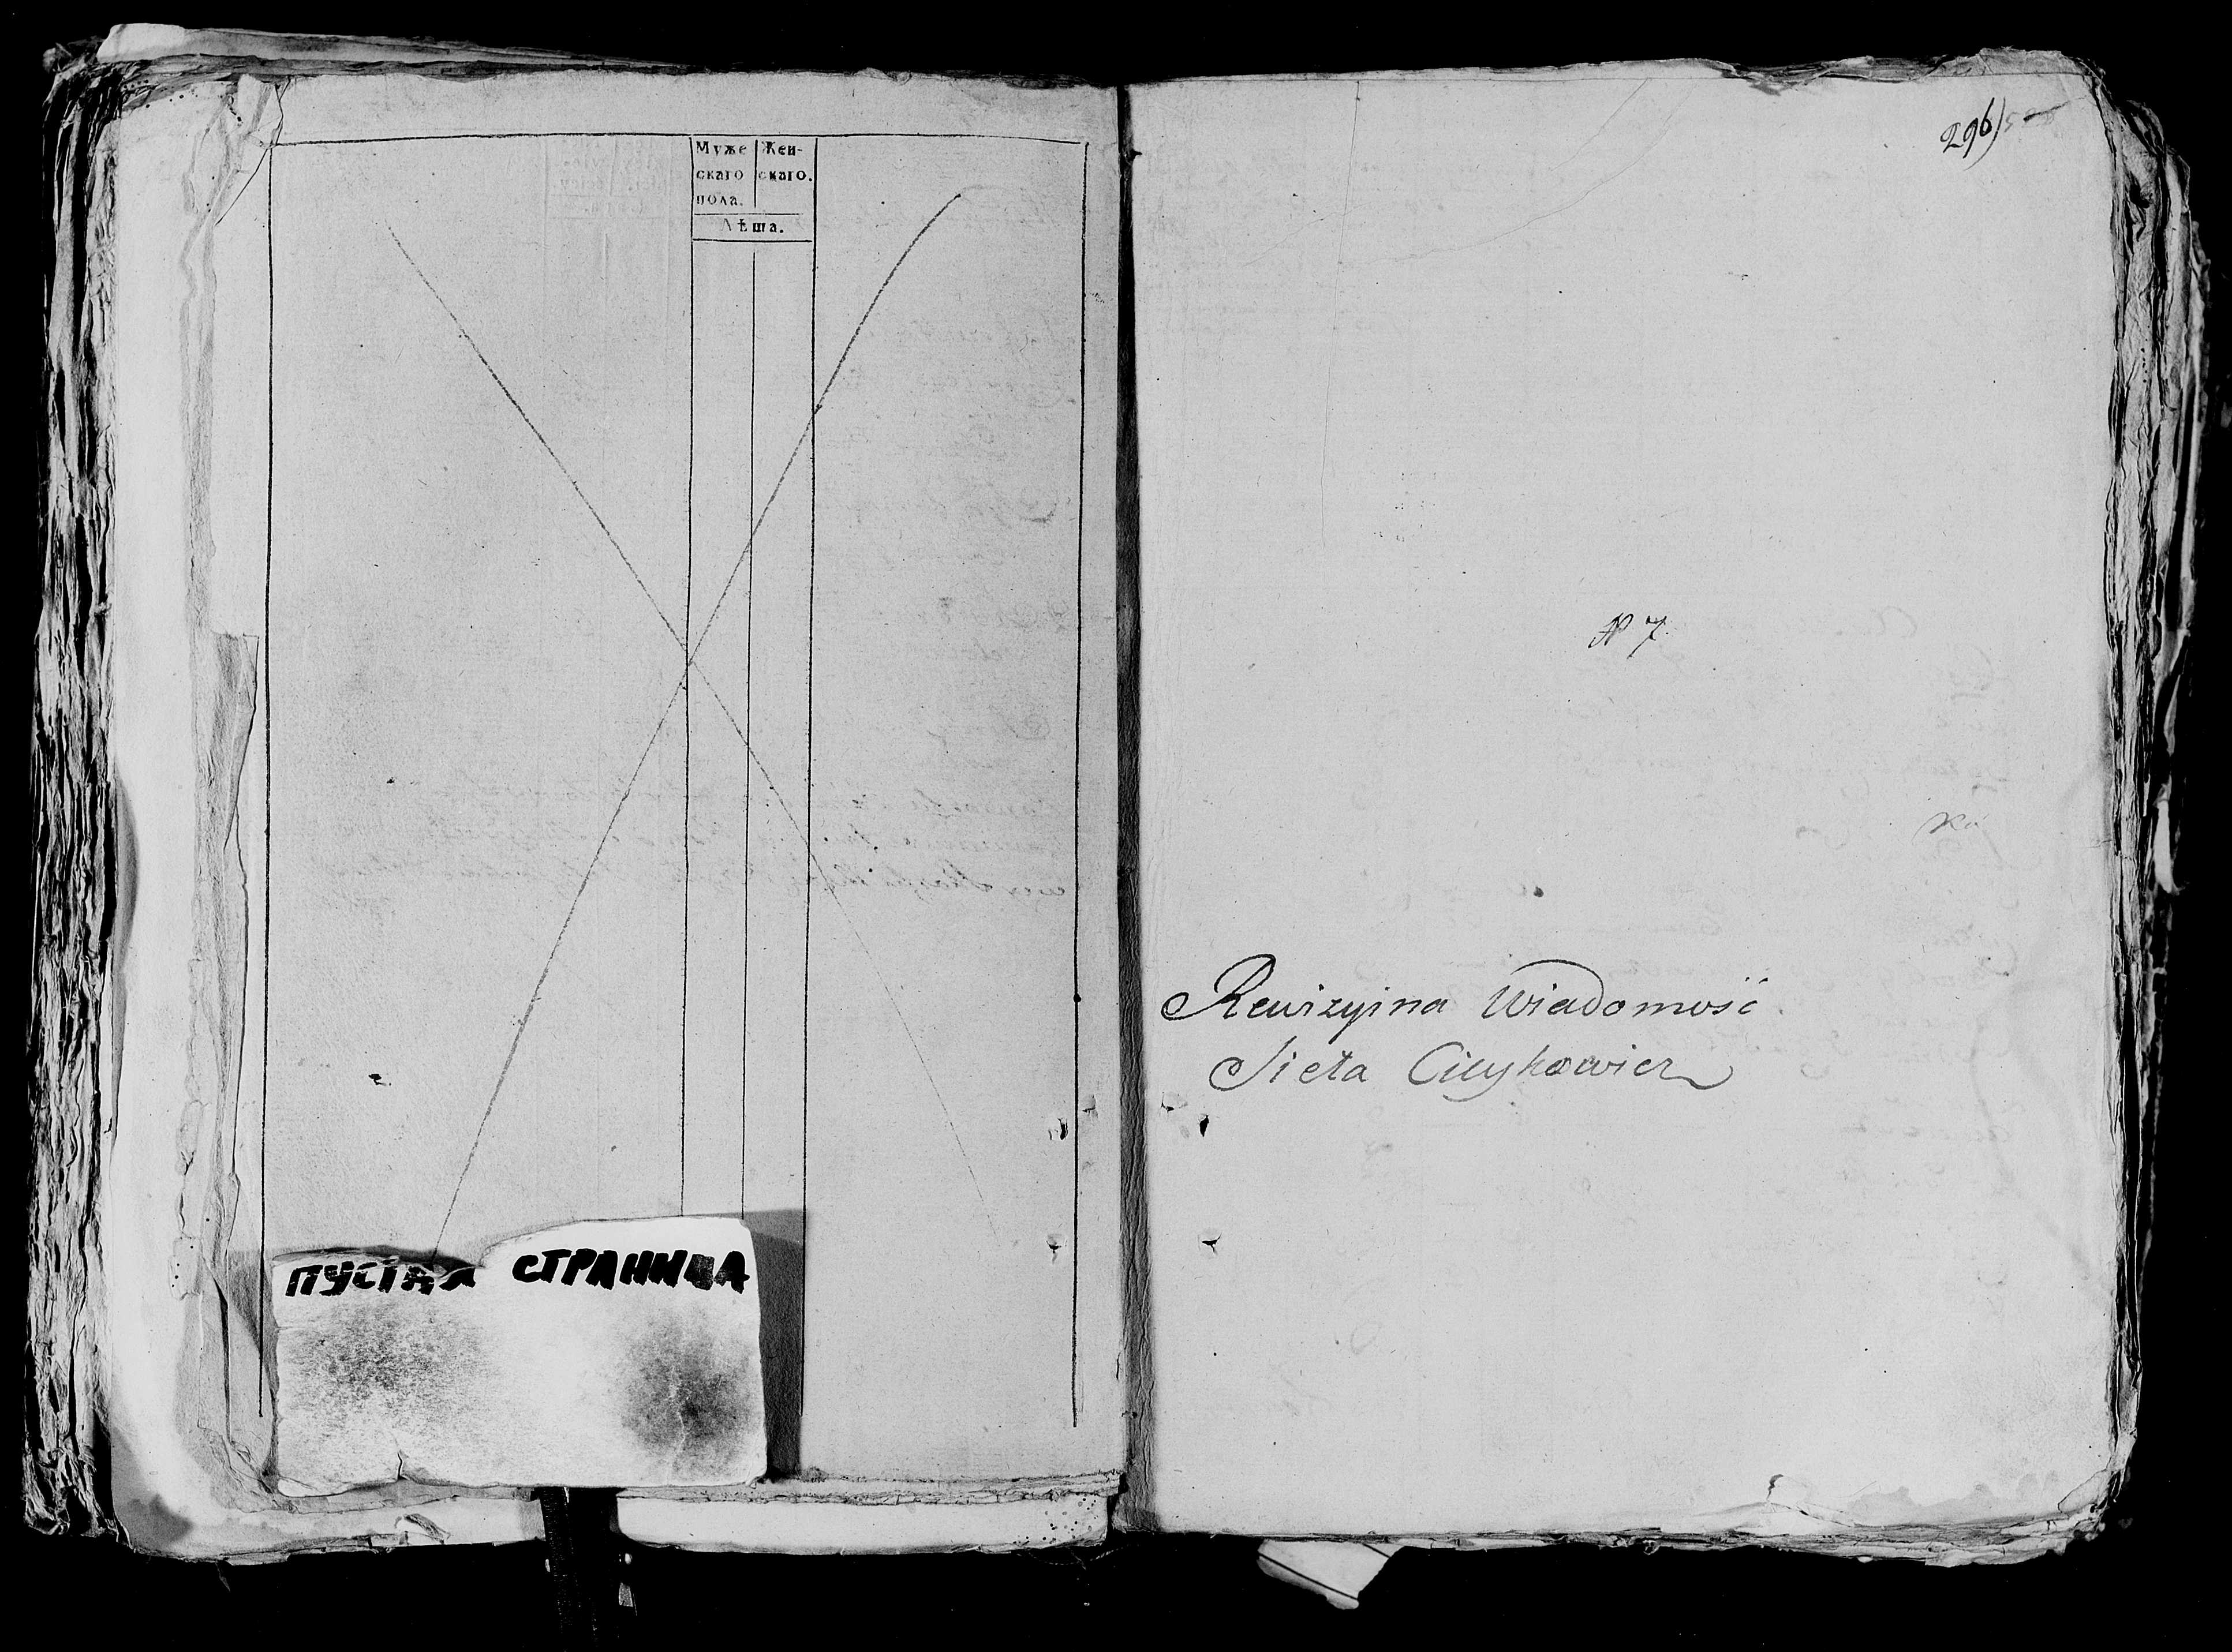 Муже Жен-
скаго скаго.
пола.
Лѣта.
ПУСТАЯ СТРАНИЦА
296
№ 7.
Rewizyina Wiadomość
Sieła Cicykowicz